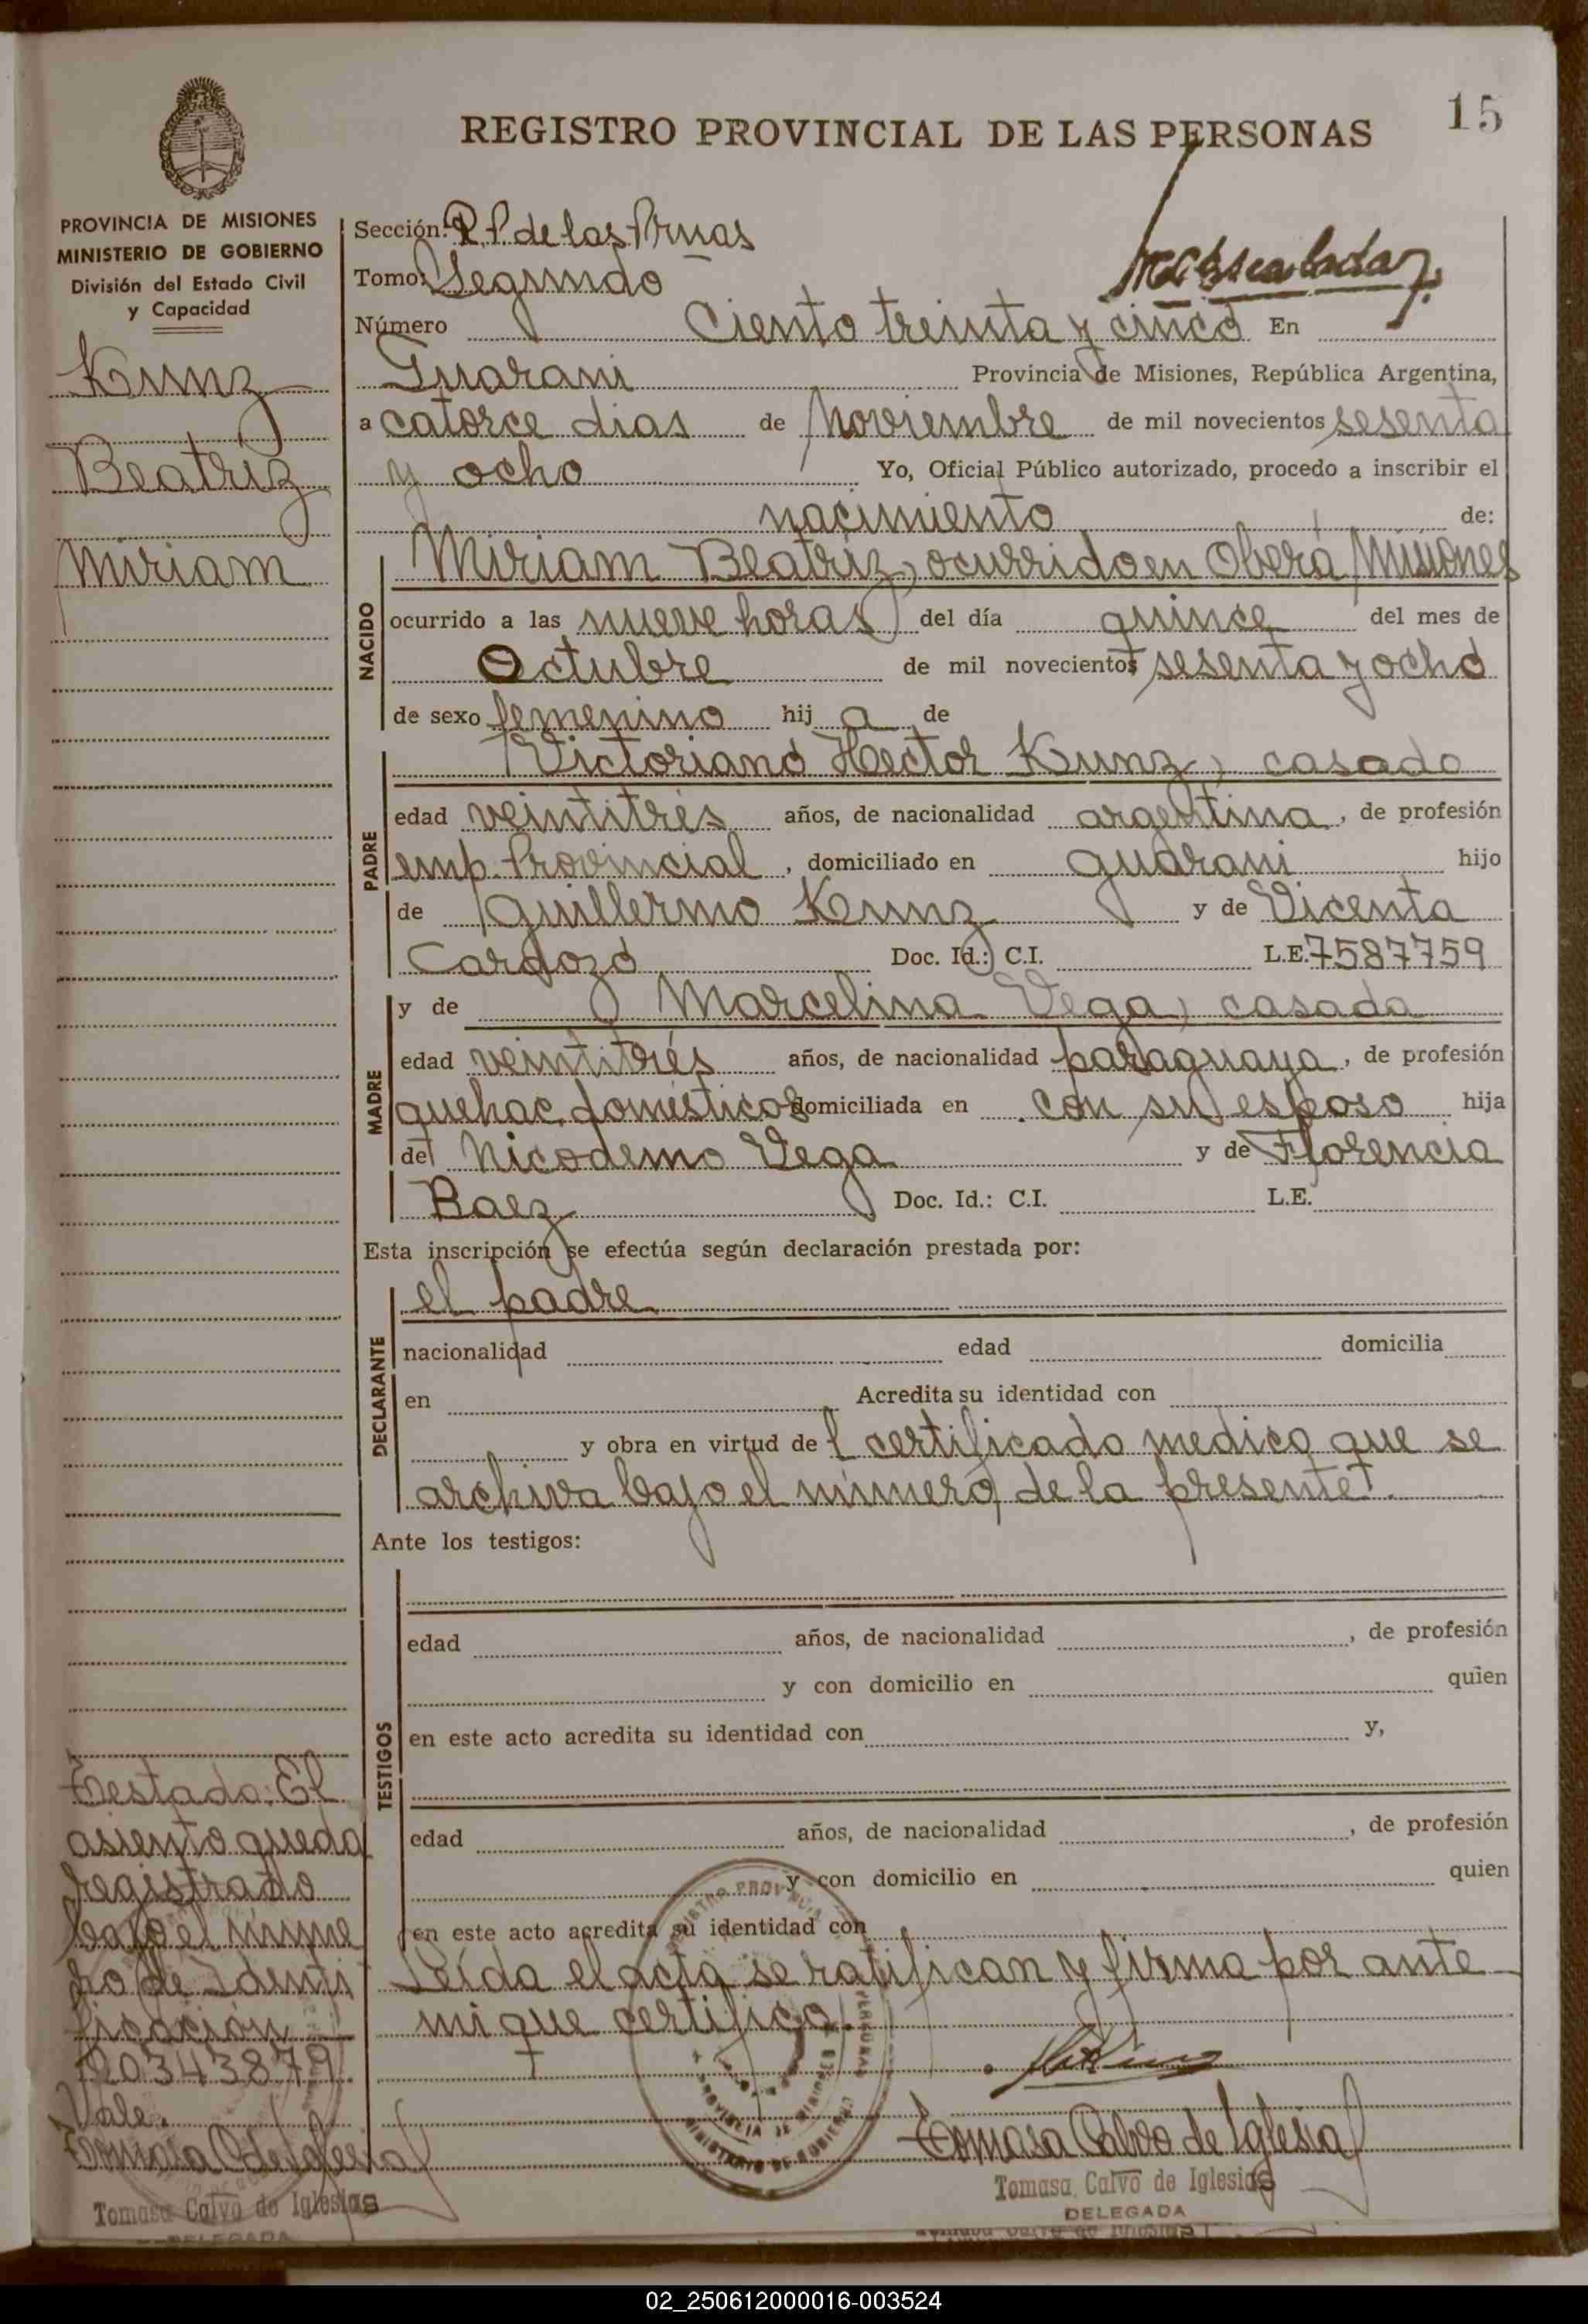 15
REGISTRO PROVINCIAL DE LAS PERSONAS
PROVINCIA DE MISIONES
MINISTERIO DE GOBIERNO
División del Estado Civil
y Capacidad
Kunz
Beatriz
Miriam
Sección: R. P. de las Prnas
Tomo: Segundo
Número Ciento treinta y cinco En
Guarani Provincia de Misiones, República Argentina,
a catorce dias de Noviembre de mil novecientos sesenta
y ocho Yo, Oficial Público autorizado, procedo a inscribir el
nacimiento de:
NACIDO
Miriam Beatriz, ocurrido en Oberá Misiones
ocurrido a las nueve horas del día quince del mes de
Octubre de mil novecientos sesenta y ocho
de sexo femenino hij a de
PADRE
Victoriano Hector Kunz, casado
edad veintitrés años, de nacionalidad argentina, de profesión
emp. Provincial, domiciliado en guarani hijo
de guillermo Kunz y de Vicenta
Cardozo Doc. Id.: C.I. L.E. 7587759
MADRE
y de Marcelina Vega, casada
edad veintitrés años, de nacionalidad paraguaya, de profesión
quehac. domésticos domiciliada en con su esposo hija
de Nicodemo Vega y de Florencia
Baez Doc. Id.: C.I. L.E.
Esta inscripción se efectúa según declaración prestada por:
DECLARANTE
el padre
nacionalidad edad domicilia
en Acredita su identidad con
y obra en virtud de l certificado medico que se
archiva bajo el número de la presente.
Ante los testigos:
TESTIGOS
edad años, de nacionalidad , de profesión
y con domicilio en quien
en este acto acredita su identidad con y,
edad años, de nacionalidad , de profesión
y con domicilio en quien
en este acto acredita su identidad con
Leída el acta se ratifican y firma por ante
mi que certifico.
Tomasa Calvo de Iglesias
Tomasa Calvo de Iglesias
DELEGADA
Testado: El
asiento queda
registrado
bajo el núme
ro de Identi
ficación
20343879
Vale.
Tomasa C. de Iglesias
Tomasa Calvo de Iglesias
DELEGADA
MINISTERIO DE GOBIERNO
PROVINCIA DE MISIONES
02_250612000016-003524